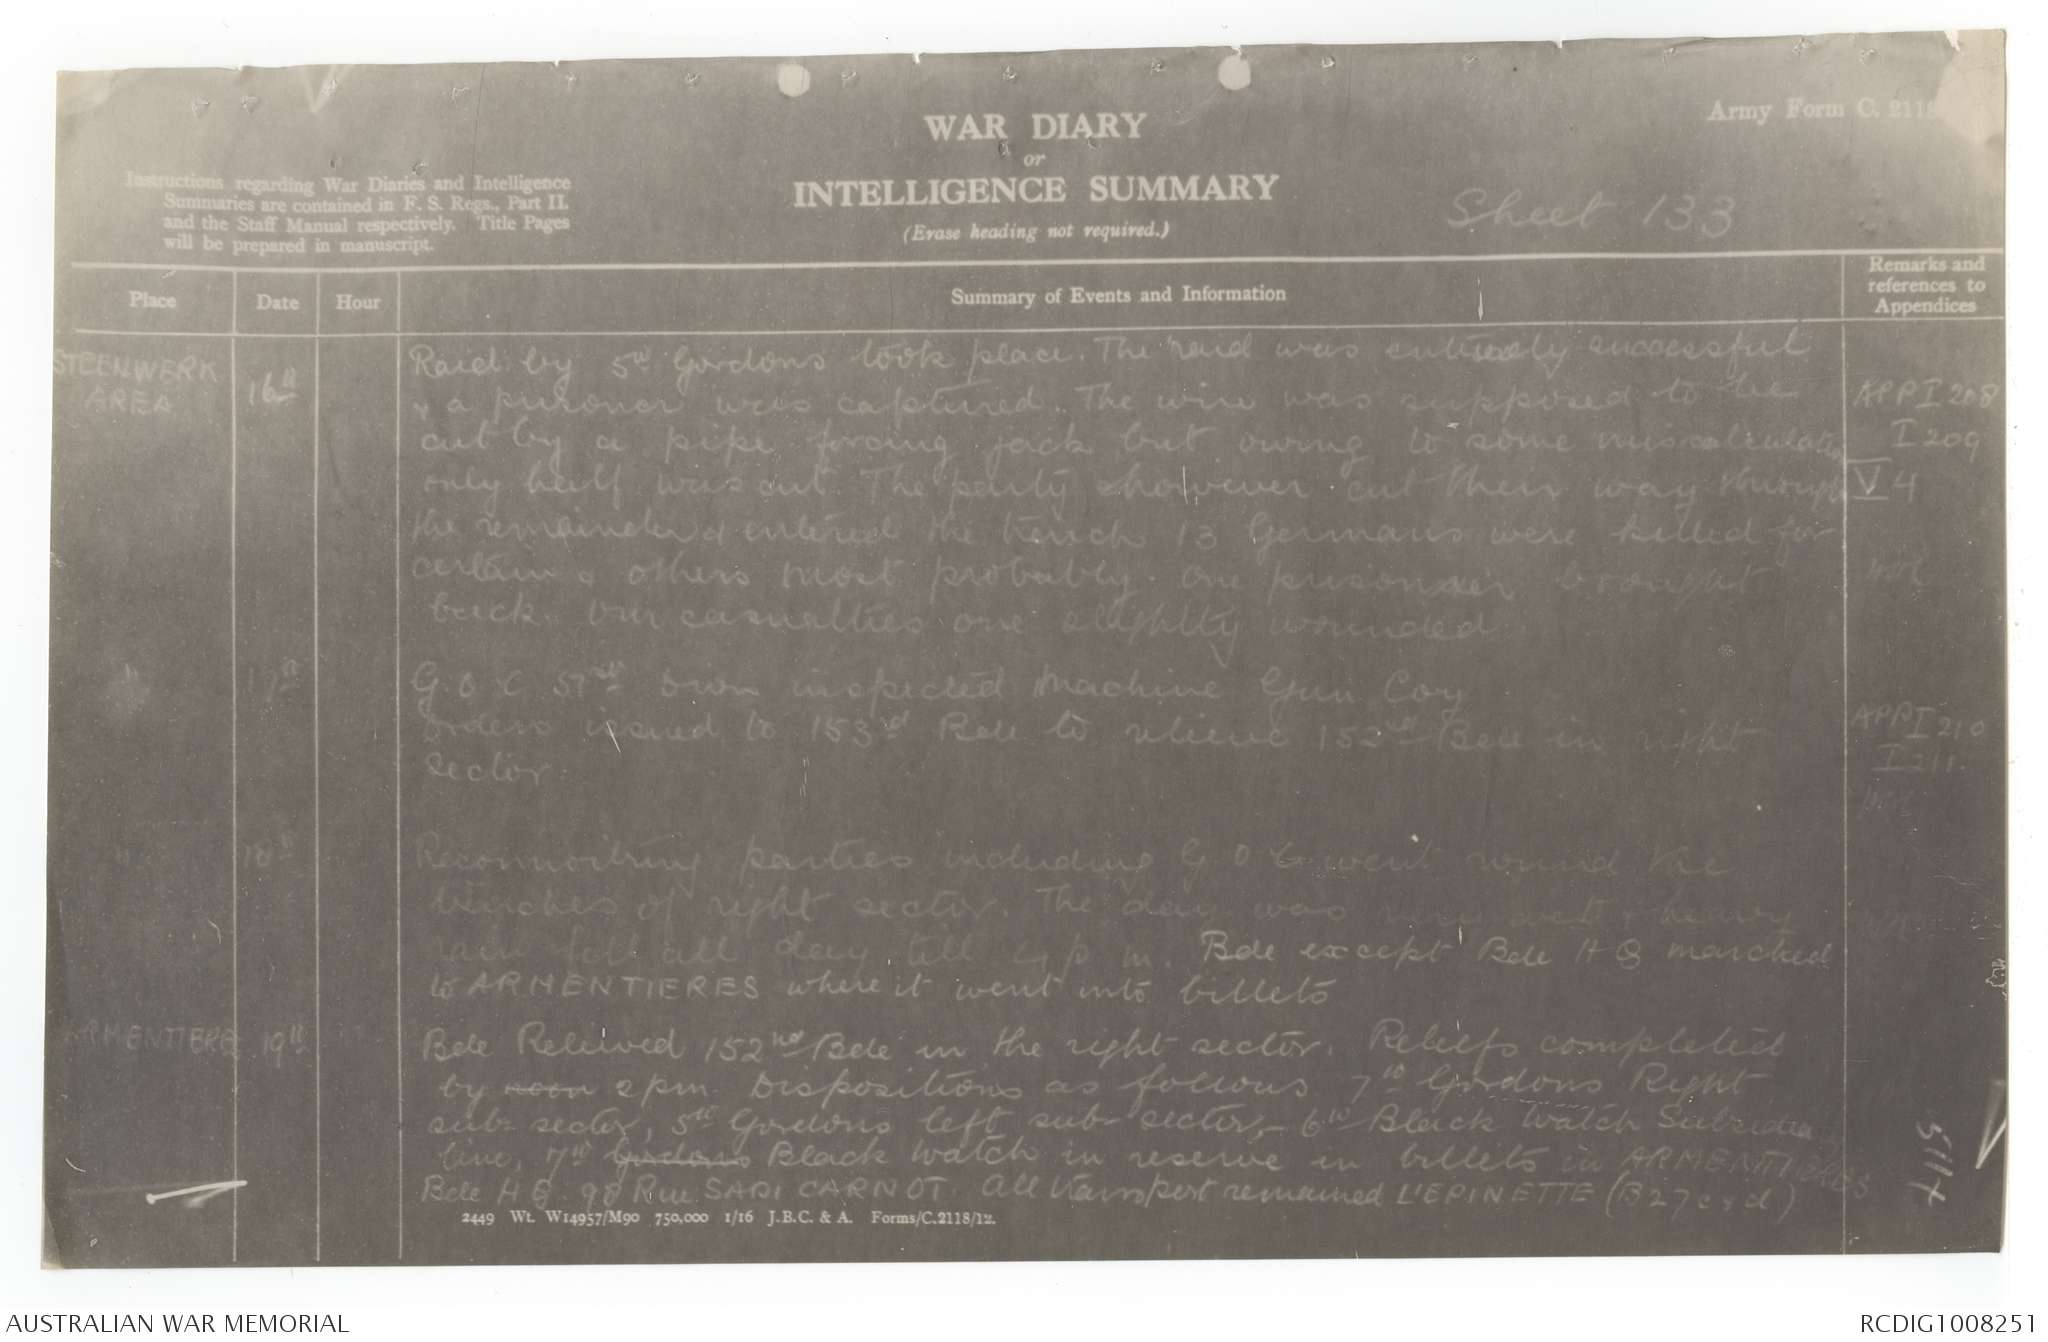 Army Form C. 2118
WAR DIARY
or
INTELLIGENCE SUMMARY
(Erase heading not required.)
Instructions regarding War Diaries and Intelligence
Summaries are contained in F. S. Regs., Part II.
and the Staff Manual respectively. Title Pages
will be prepared in manuscript.
Sheet 133
Place
Date
Hour
Summary of Events and Information
Remarks and
references to
Appendices
STEENWERK
AREA
16th
Raid by 5th Gordons took place. The raid was entirely successful
& a prisoner was captured. The wire was supposed to be
cut by a pipe forcing jack but owing to some miscalculation
only half was cut. The party however cut their way through
the remainder & entered the trench 13 Germans were killed for
certain & others most probably. One prisoner brought
back. Our casualties one slightly wounded
APP I 208
I 209
V 4
"
17th
G.O.C. 51st Divn inspected Machine Gun Coy
Orders issued to 153rd Bde to relieve 152nd Bde in right
sector.
APP I 210
I 211.
"
18th
Reconnoitring parties including G.O.C. went round the
trenches of right sector. The day was very wet & heavy
rain fell all day till 4 p.m. Bde except Bde H Q marched
to ARMENTIERES where it went into billets
ARMENTIERES
19th
Bde Relieved 152nd Bde in the right sector. Reliefs completed
by noon 2 pm. Dispositions as follows 7th Gordons Right
sub sector, 5th Gordons left sub-sector, - 6th Black Watch Subsidiary
line, 7th Gordons Black Watch in reserve in billets in ARMENTIERES
Bde H Q. 98 Rue SADI CARNOT. All transport remained L'EPINETTE (B27 c & d)
2449 Wt. W14957/M90 750,000 1/16 J.B.C. & A. Forms/C.2118/12.
AUSTRALIAN WAR MEMORIAL
RCDIG1008251